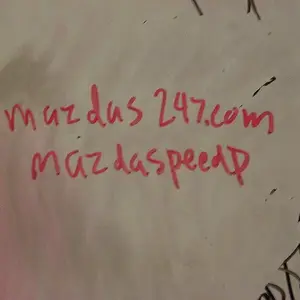 mazdas247.com
mazdaspeedP